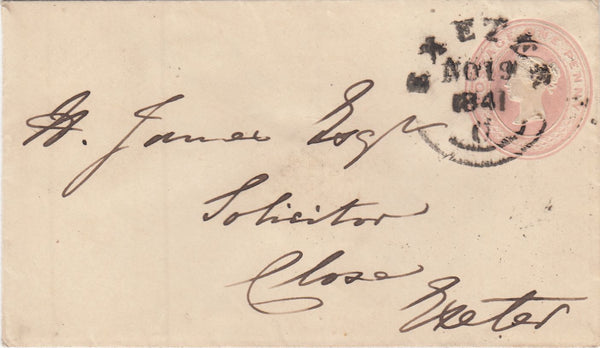 EXETER
NO 19
1841
H. James Esqr
Solicitor
Close
Exeter